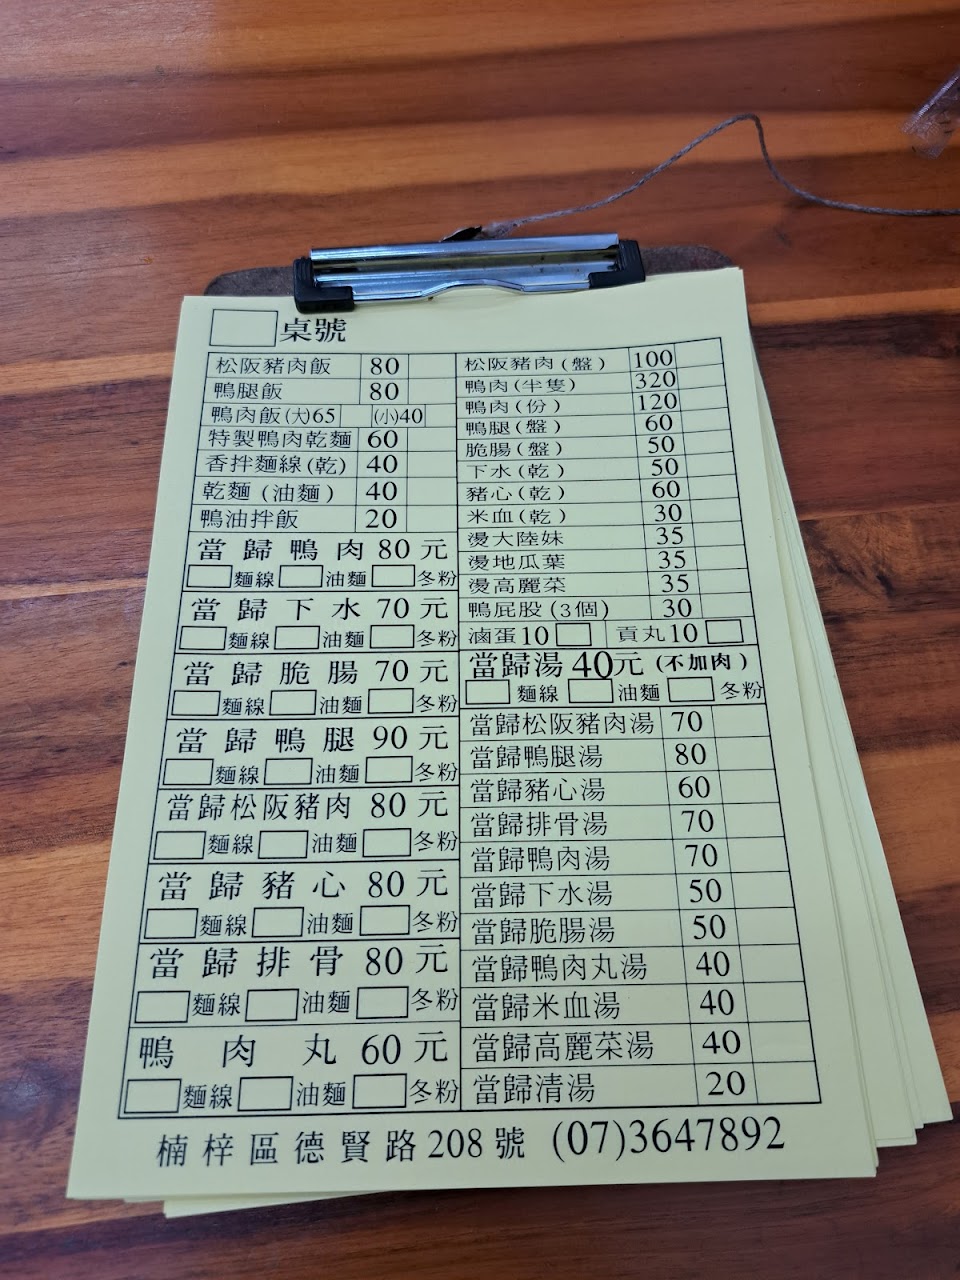 桌號
松阪豬肉飯 80
鴨腿飯 80
鴨肉飯(大)65 (小)40
特製鴨肉乾麵 60
香拌麵線(乾) 40
乾麵(油麵) 40
鴨油拌飯 20
當歸鴨肉 80元
麵線 油麵 冬粉
當歸下水 70元
麵線 油麵 冬粉
當歸脆腸 70元
麵線 油麵 冬粉
當歸鴨腿 90元
麵線 油麵 冬粉
當歸松阪豬肉 80元
麵線 油麵 冬粉
當歸豬心 80元
麵線 油麵 冬粉
當歸排骨 80元
麵線 油麵 冬粉
鴨肉丸 60元
麵線 油麵 冬粉
松阪豬肉(盤) 100
鴨肉(半隻) 320
鴨肉(份) 120
鴨腿(盤) 60
脆腸(盤) 50
下水(乾) 50
豬心(乾) 60
米血(乾) 30
燙大陸妹 35
燙地瓜葉 35
燙高麗菜 35
鴨屁股(3個) 30
滷蛋10 貢丸10
當歸湯 40元(不加肉)
麵線 油麵 冬粉
當歸松阪豬肉湯 70
當歸鴨腿湯 80
當歸豬心湯 60
當歸排骨湯 70
當歸鴨肉湯 70
當歸下水湯 50
當歸脆腸湯 50
當歸鴨肉丸湯 40
當歸米血湯 40
當歸高麗菜湯 40
當歸清湯 20
楠梓區德賢路208號 (07)3647892